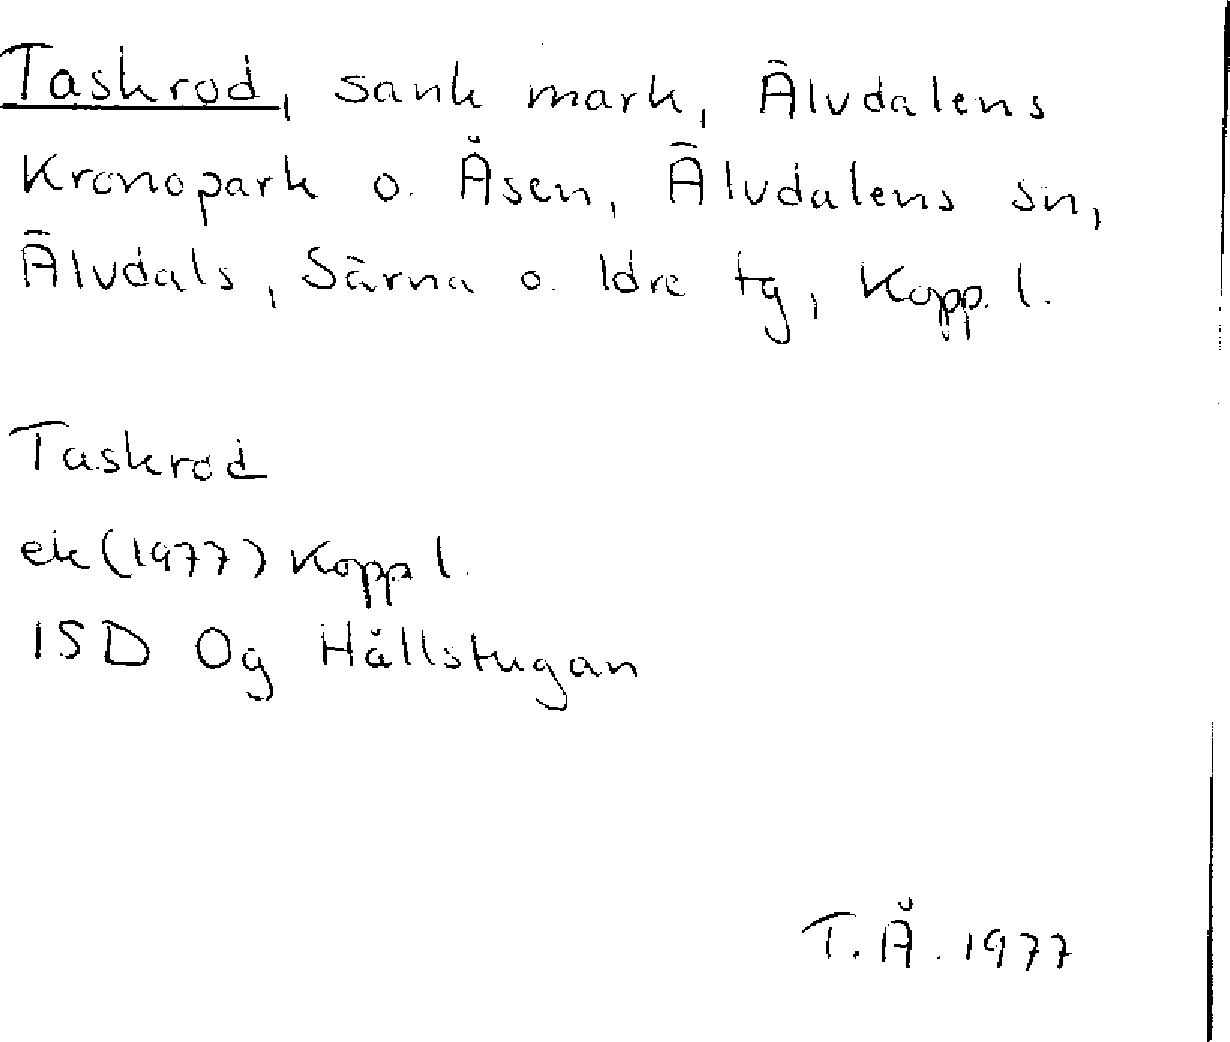 Taskrod, sank mark, Älvdalens
Kronopark o. Åsen, Älvdalens sn,
Älvdals, Särna o. Idre tg, Kopp. l.
Taskrod
ek (1977) Kopp l.
15D 0g Hållstugan
T.Å. 1977